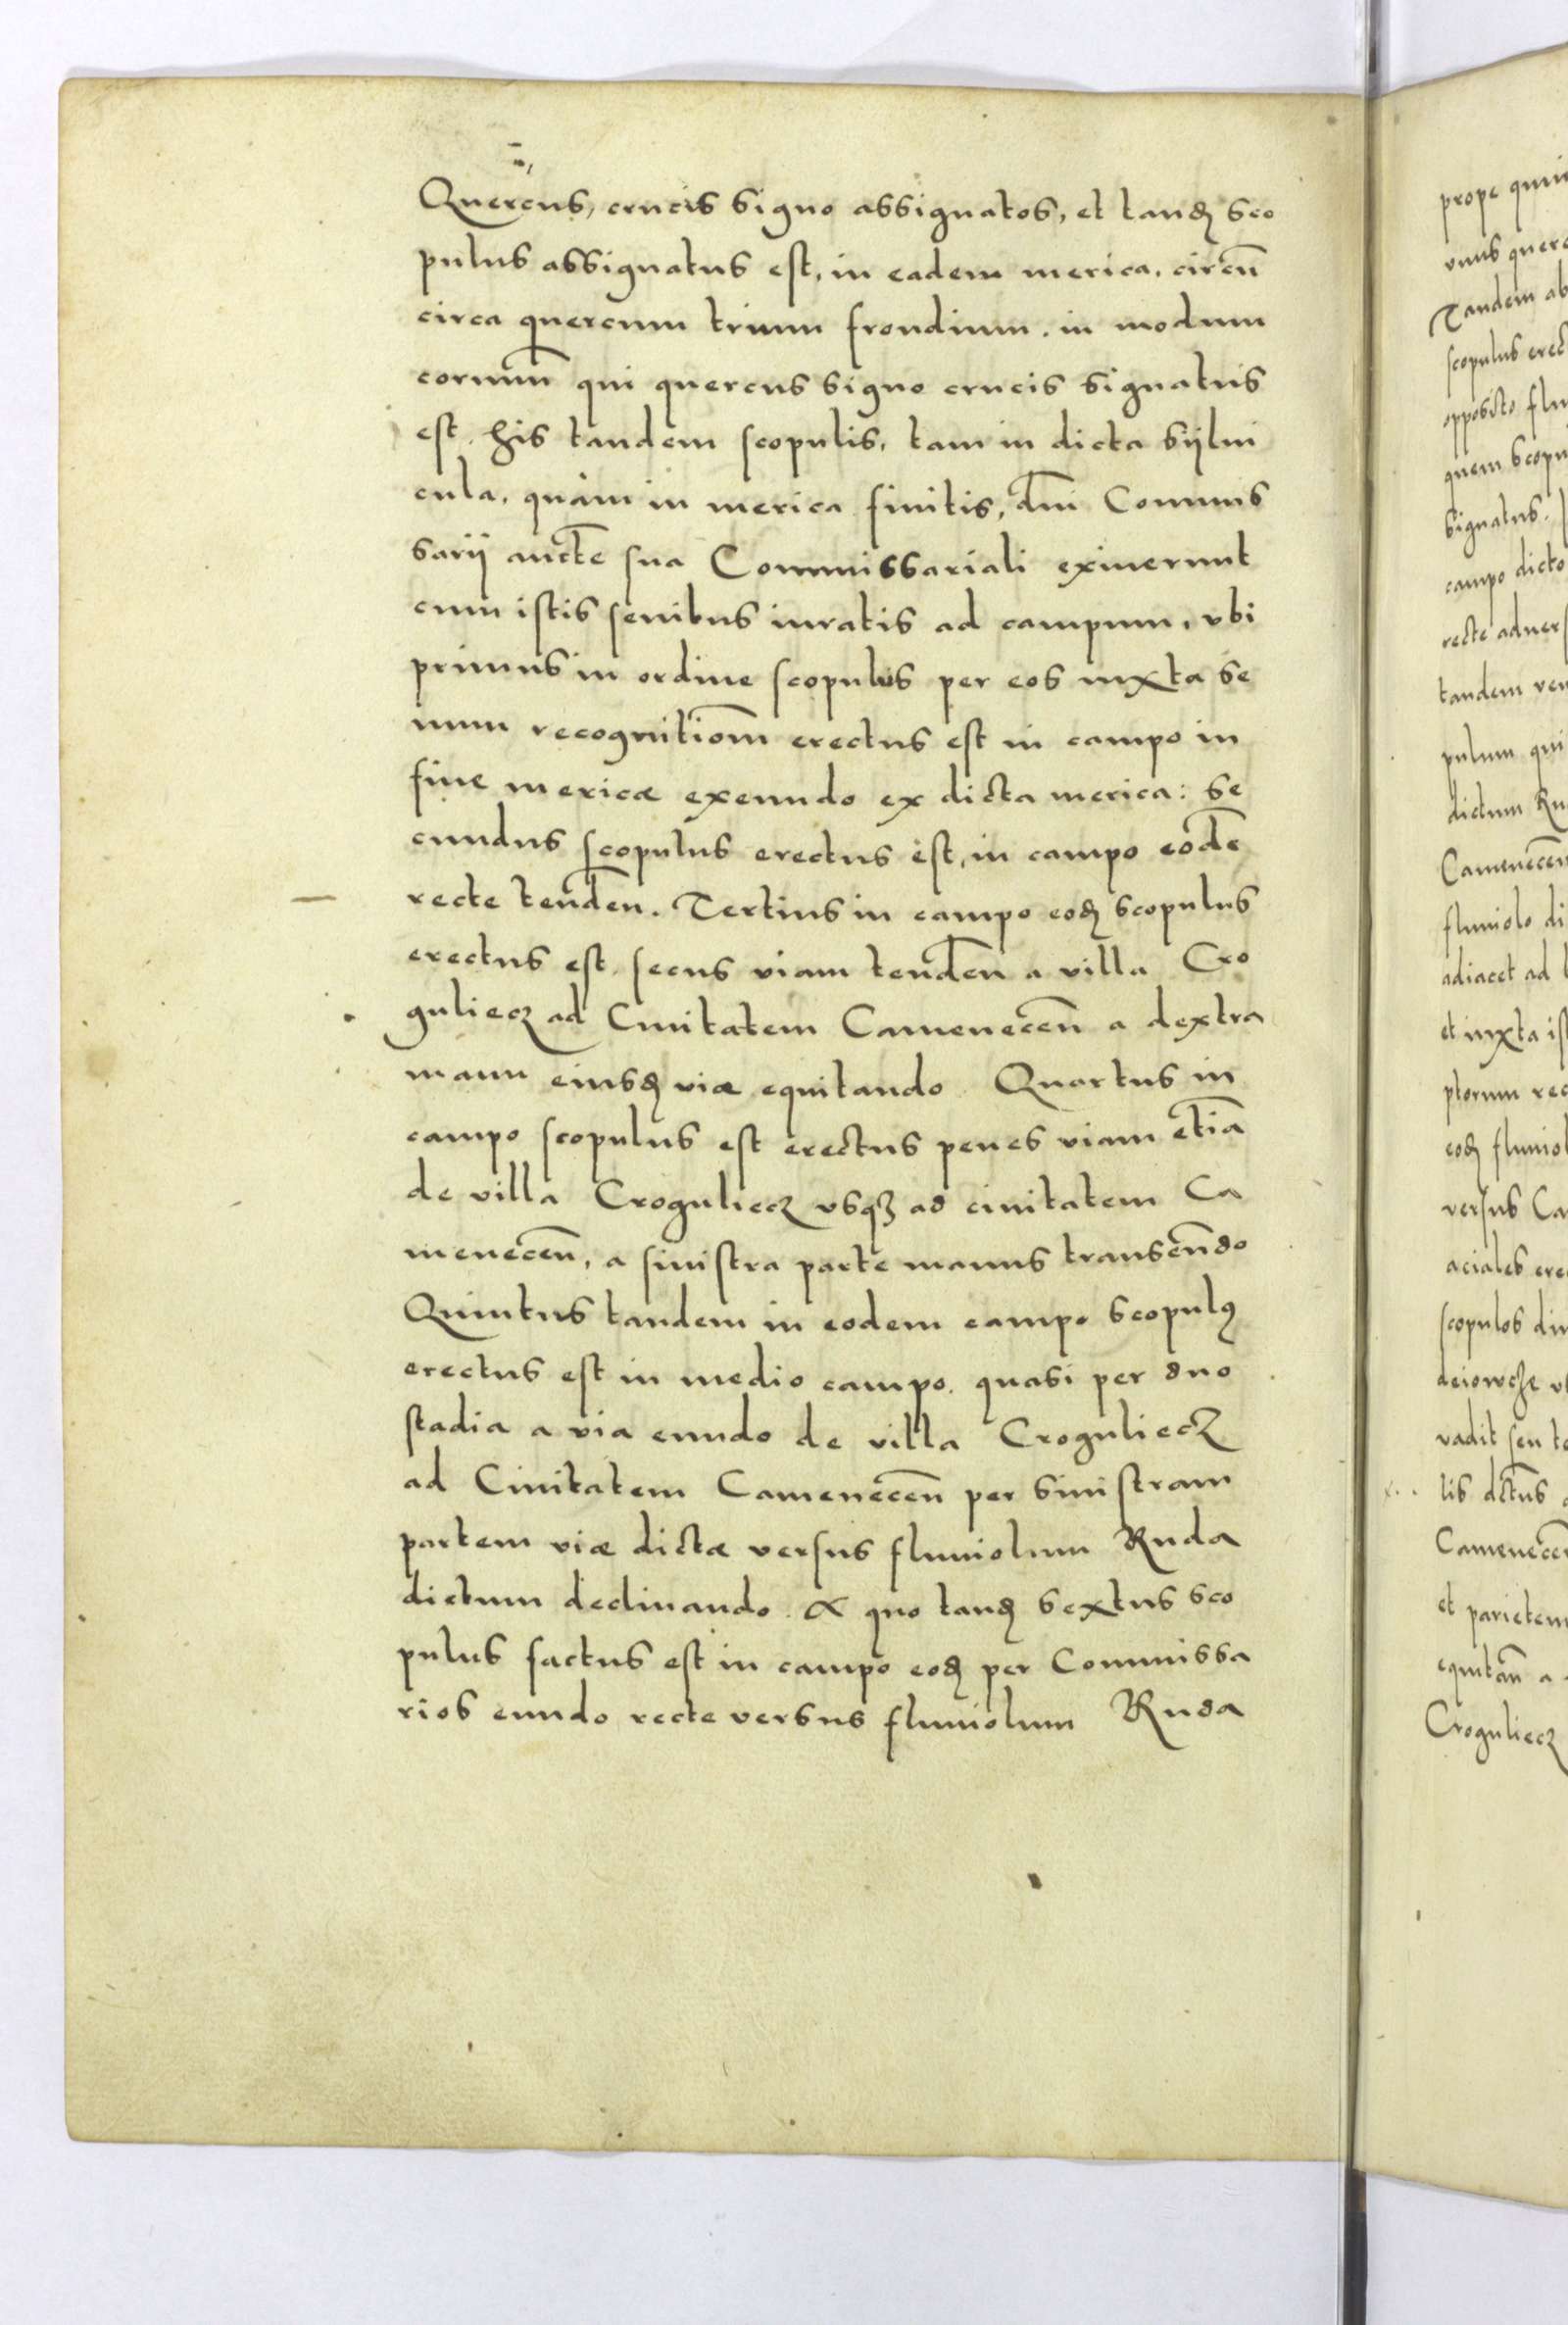 Quercus, crucis signo assignatos, et tandẽ sco
pulus assignatus est, in eadem merica, circũ
circa quercum trium frondium. in modum
cornuum̃ qui quercus signo crucis signatus
est. his tandem scopulis, tam in dicta sÿlui
cula, quàm in merica finitis, dñi Commis
sarij aucte͠ sua Commissariali exiuerunt
cum istis senibus iuratis ad campum, vbi
primus in ordine scopulus per eos iuxta se
num recognitiom̃ erectus est in campo in
fine mericæ exeundo ex dicta merica: Se
cundus scopulus erectus est, in campo eode͠
recte tendeñ. Tertius in campo eodẽ scopulus
erectus est secus viam tendeñ a villa Cro
guliecz ad Ciuitatem Cameneceñ a dextra
manu eiusdẽ viæ equitando. Quartus in
campo scopulus est erectus penes viam etiã
de villa Croguliecz vsqȝ ad ciuitatem Ca
meneceñ, a sinistra parte manus transeñdo
Quintus tandem in eodem campo scopulꝰ
erectus est in medio campo. quasi per duo
stadia a via eundo de villa Croguliecz
ad Ciuitatem Cameneceñ per sinistram
partem viæ dictæ versus fluuiolum Ruda
dictum declinando. A quo tandẽ sextus sco
pulus factus est in campo eodẽ per Commissa
rios eundo recte versus fluuiolum Ruda
prope
vnus
Tandem
scopulus
opposito
quem
signatus.
campo dicto
recte
tandem
pulum qui
dictum
fluuiolo
adiacet ad
et iuxta
ptorum
eodẽ
versus
aciales
scopulos
vadit seu
et parietem
Croguliecz